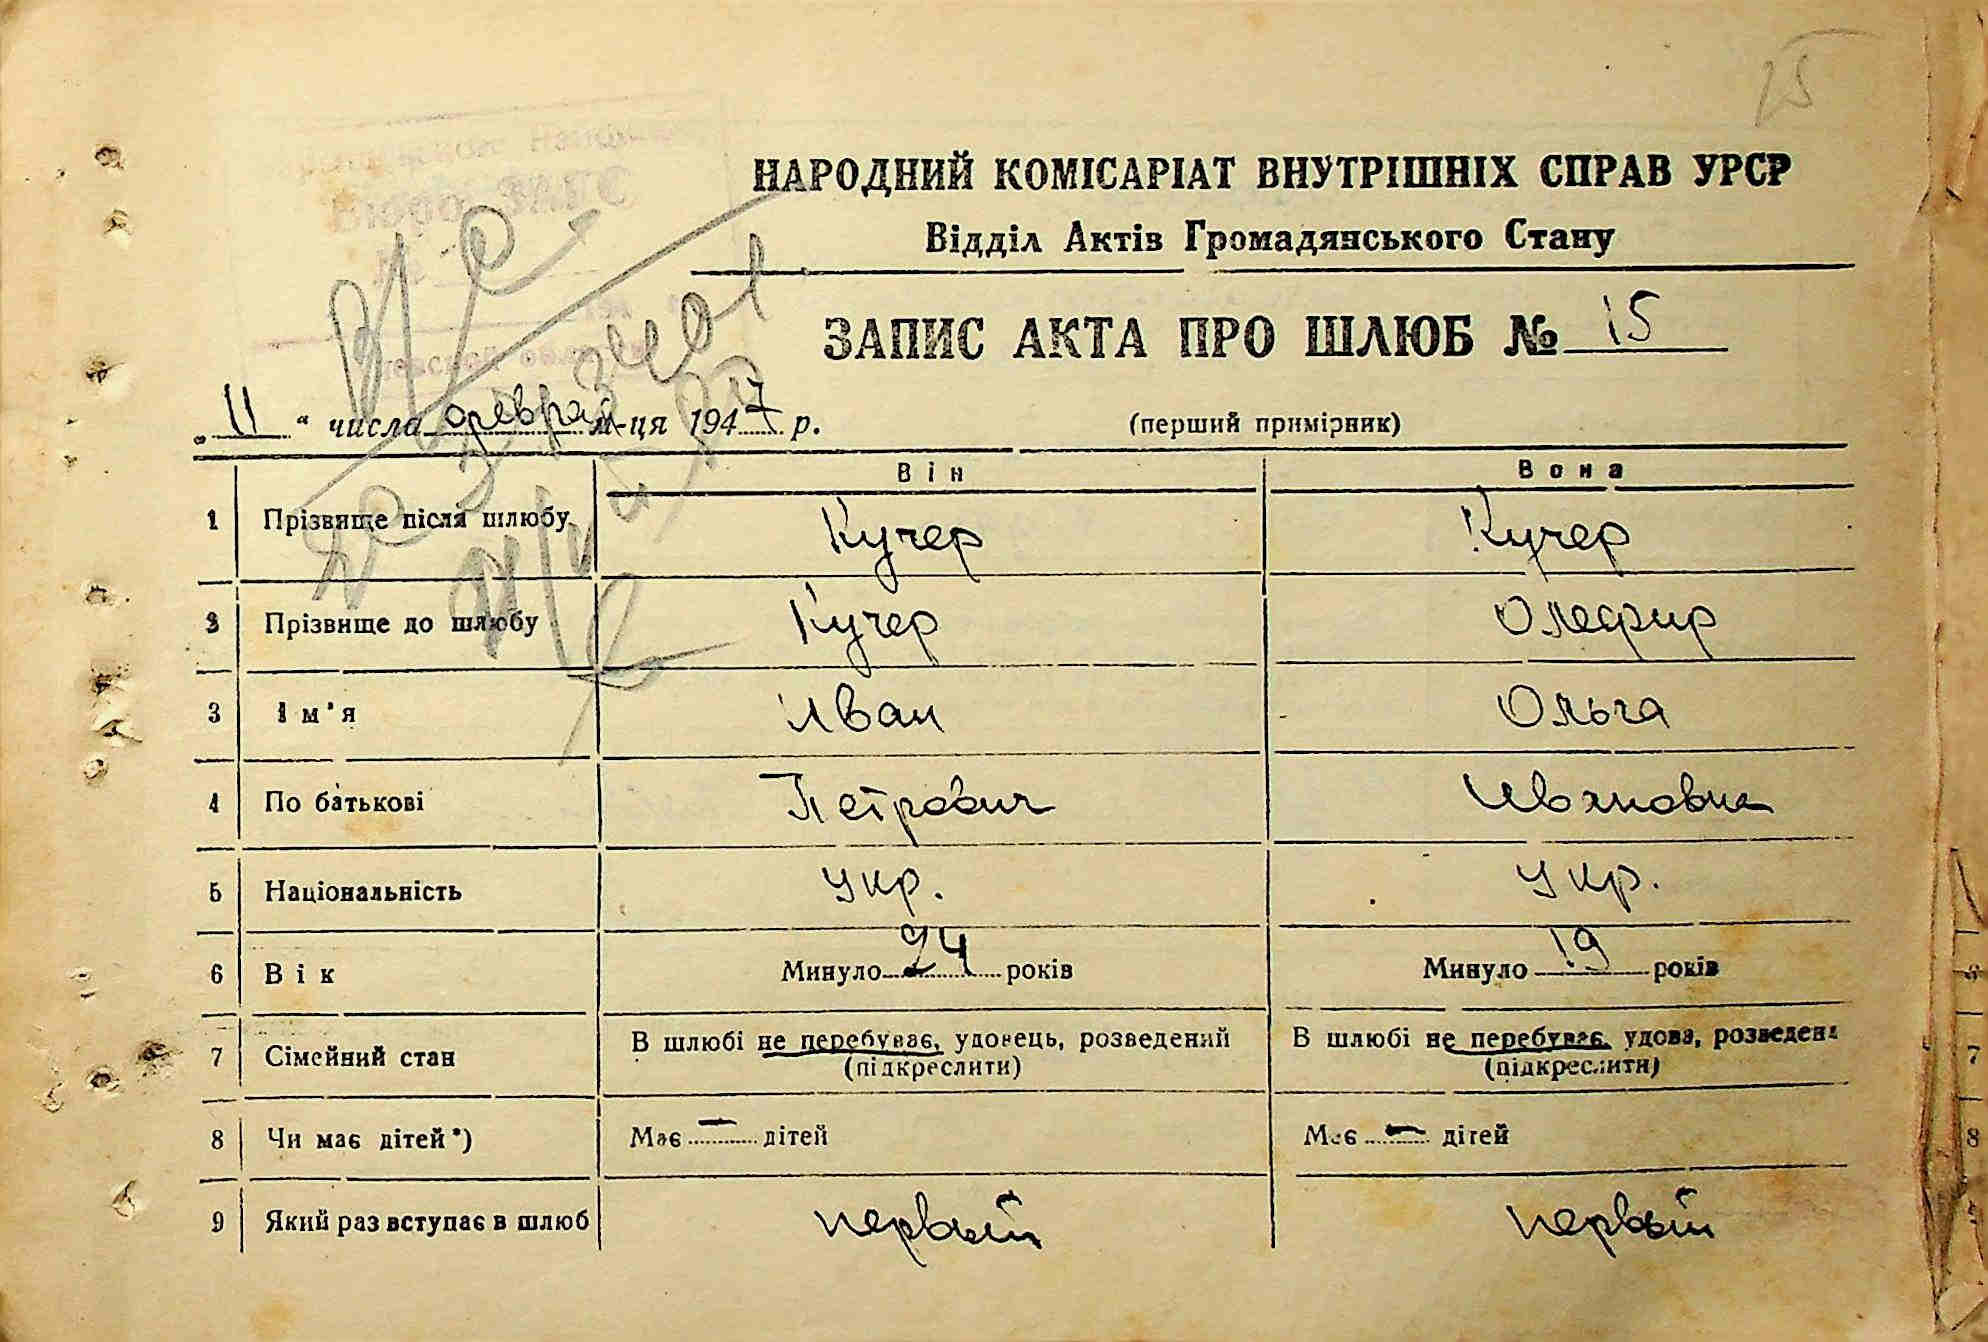 25
Бюро ЗАГС
НАРОДНИЙ КОМІСАРІАТ ВНУТРІШНІХ СПРАВ УРСР
Відділ Актів Громадянського Стану
ЗАПИС АКТА ПРО ШЛЮБ № 15
„ 11 “ числа феврал м-ця 1947 р. (перший примірник)
Він Вона
1 Прізвище після шлюбу Кучер Кучер
2 Прізвище до шлюбу Кучер Олефир
3 Ім'я Иван Ольга
4 По батькові Петрович Ивановна
5 Національність укр. укр.
6 Вік Минуло 24 років Минуло 19 років
7 Сімейний стан В шлюбі не перебуває, удовець, розведений В шлюбі не перебуває, удова, розведена
(підкреслити) (підкреслити)
8 Чи має дітей*) Має — дітей Має — дітей
9 Який раз вступає в шлюб первый первый
7
8